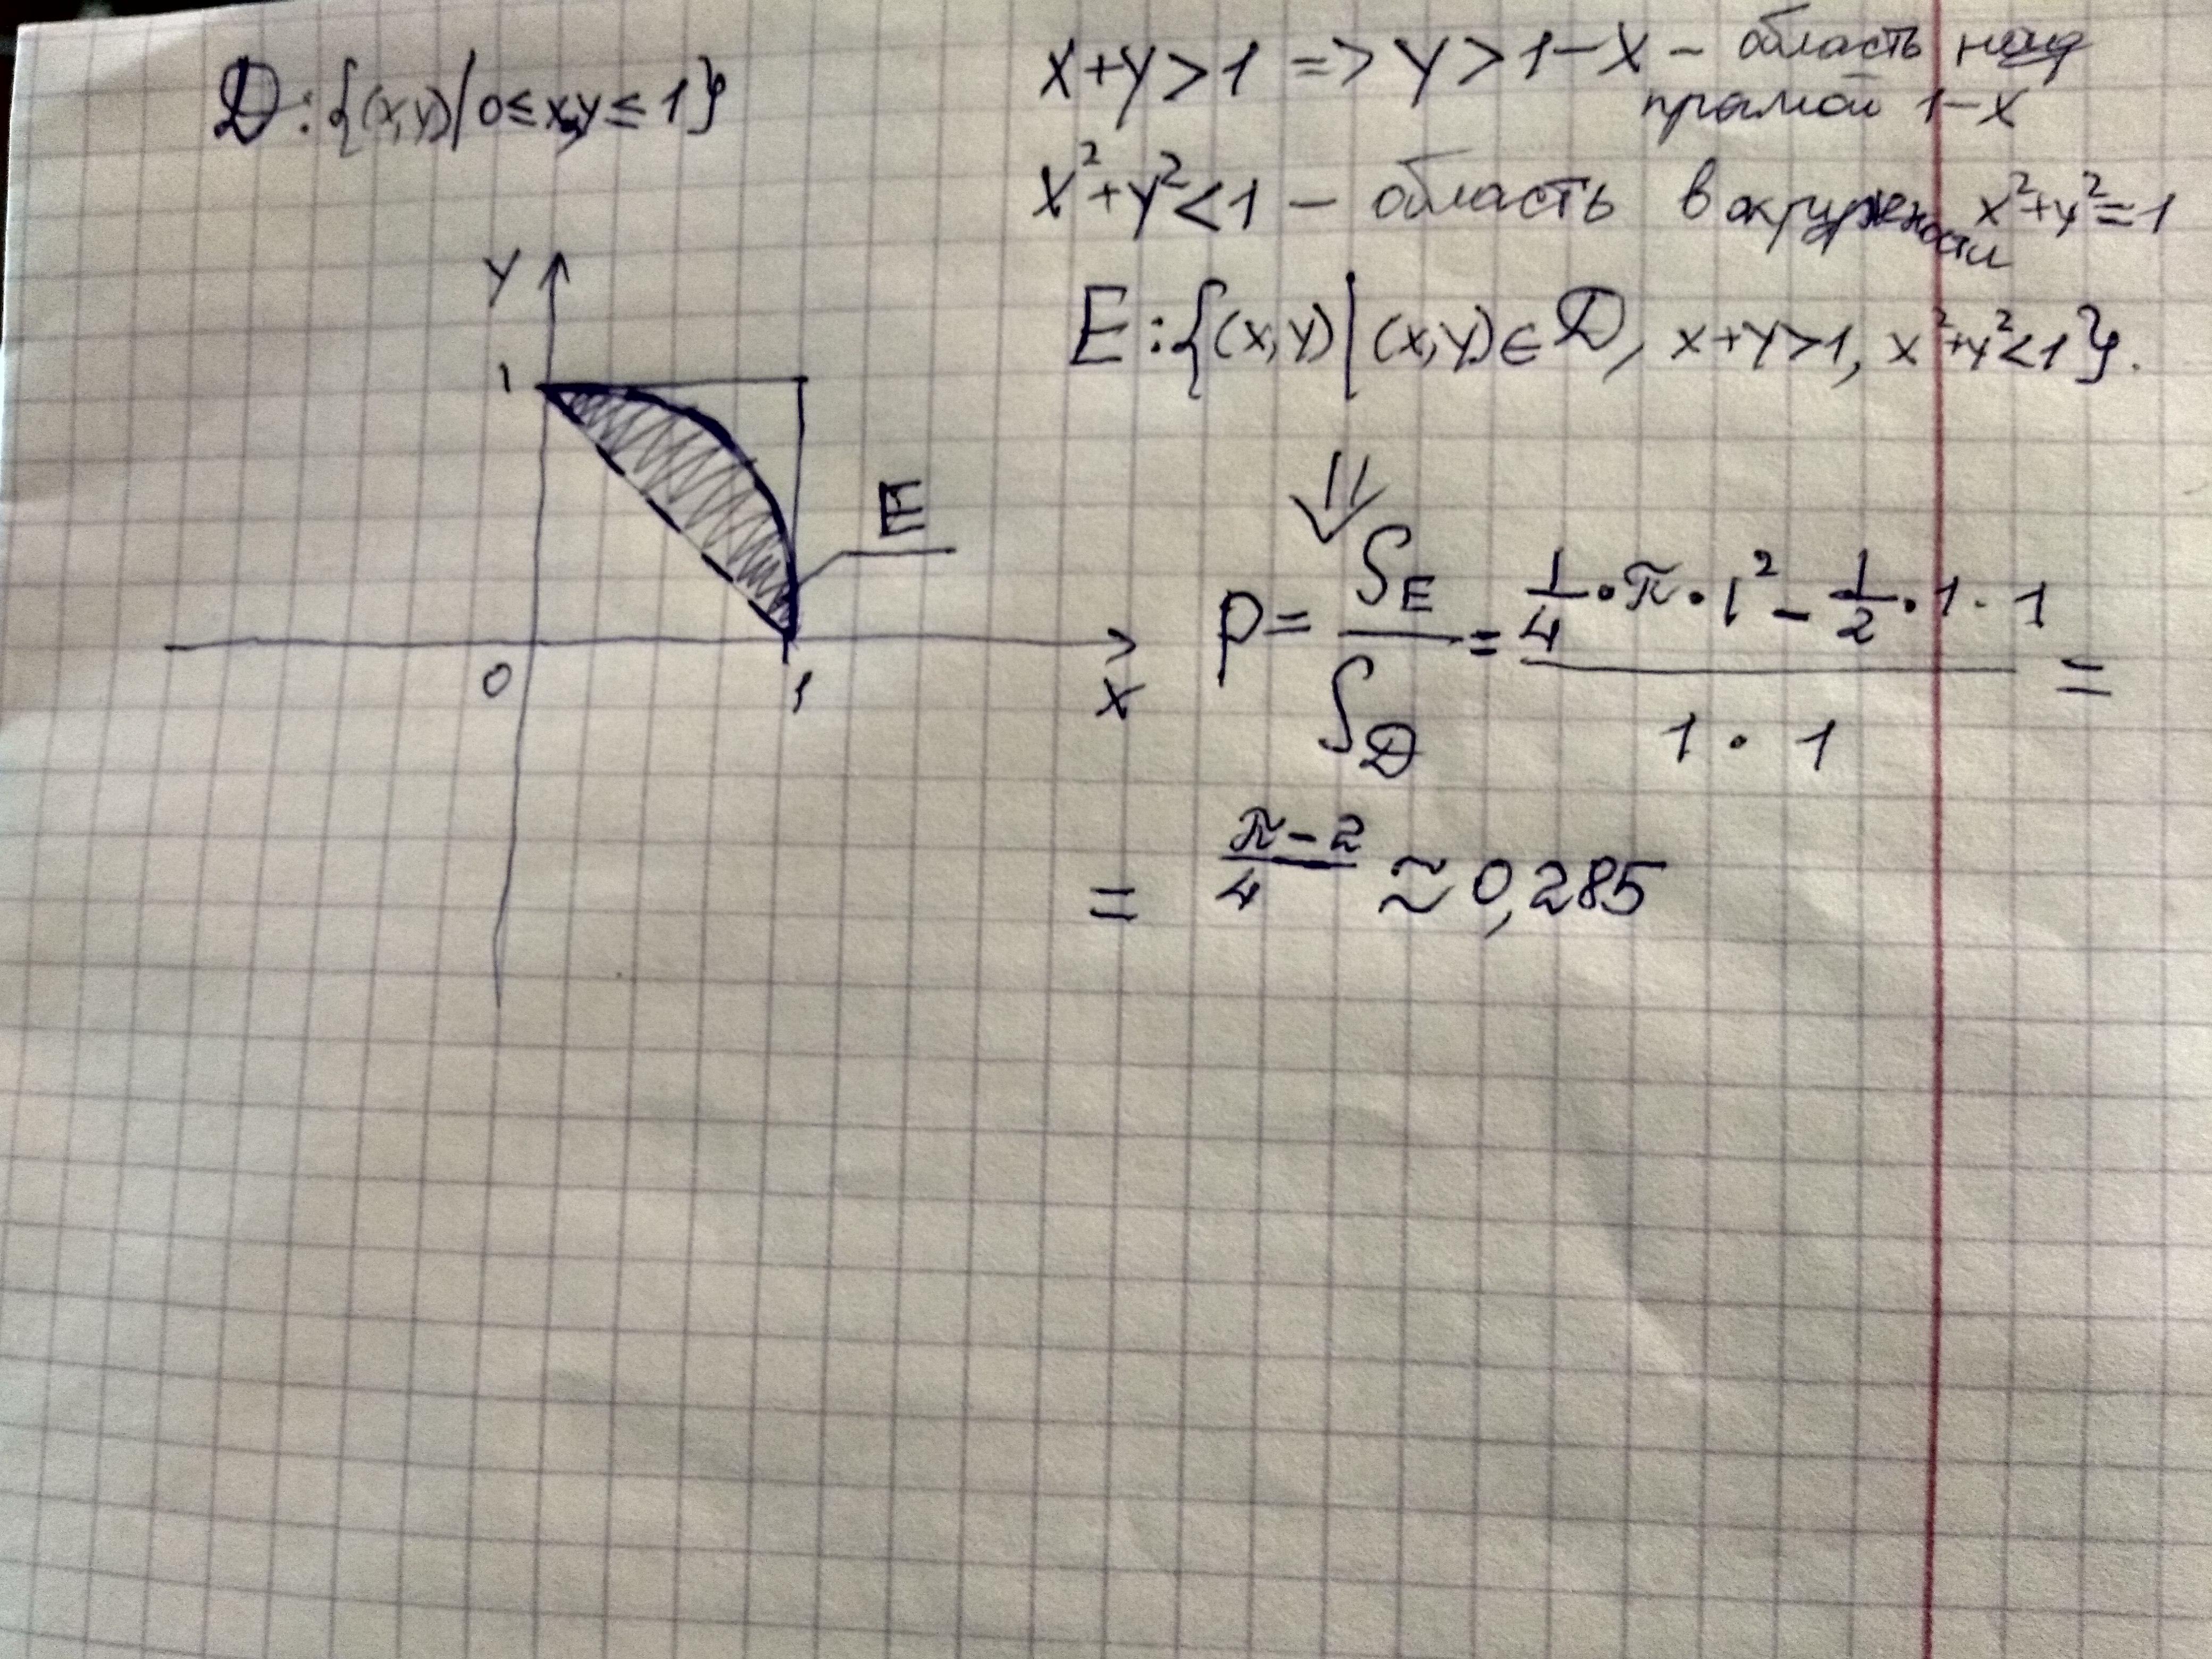 D: {(x,y) | 0 ≤ x,y ≤ 1}
x+y>1 => y>1-x - область над
прямой 1-x
x²+y²<1 - область в окружности x²+y²=1
E: {(x,y) | (x,y) ∈ D, x+y>1, x²+y²<1}.
y
1
E
0
1
x
⇓
P = S_E / S_D = (1/4 · π · 1² - 1/2 · 1 · 1) / (1 · 1) =
= (π-2)/4 ≈ 0,285